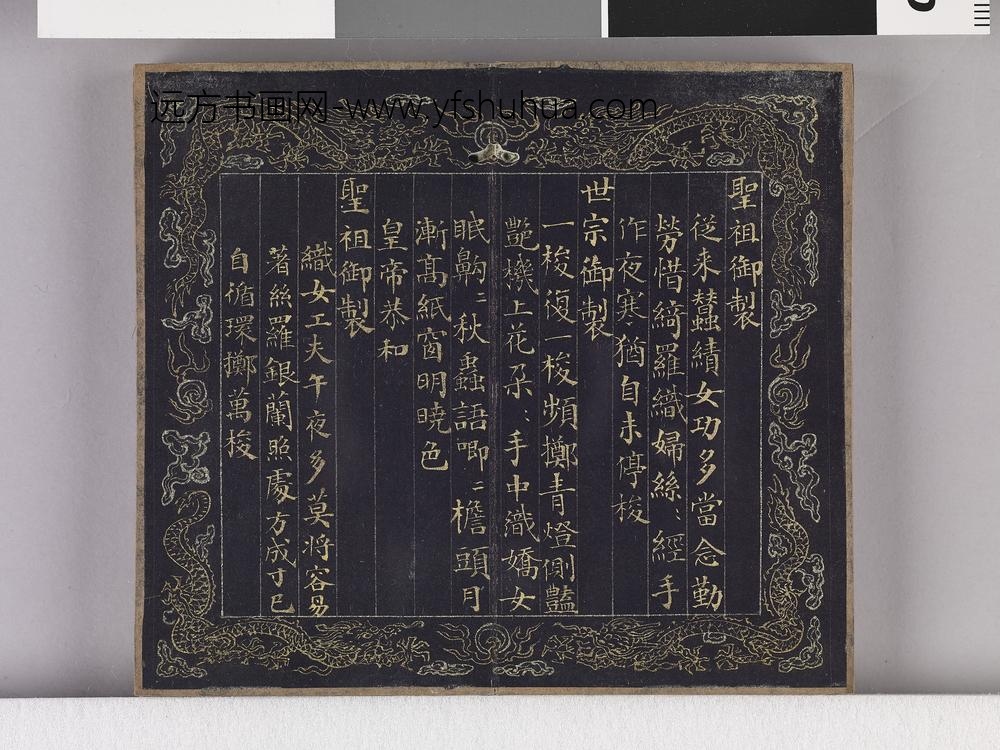 远方书画网-www.yfshuhua.com
聖祖御製
從来蠶績女功多當念勤
勞惜綺羅織婦絲〻經手
作夜寒猶自未停梭
世宗御製
一梭復一梭頻擲青燈側豔
艷機上花朵〻手中織嬌女
眠齁〻秋蟲語唧〻檐頭月
漸高紙窗明曉色
皇帝恭和
聖祖御製
織女工夫午夜多莫將容易
著絲羅銀蘭照處方成寸已
自循環擲萬梭